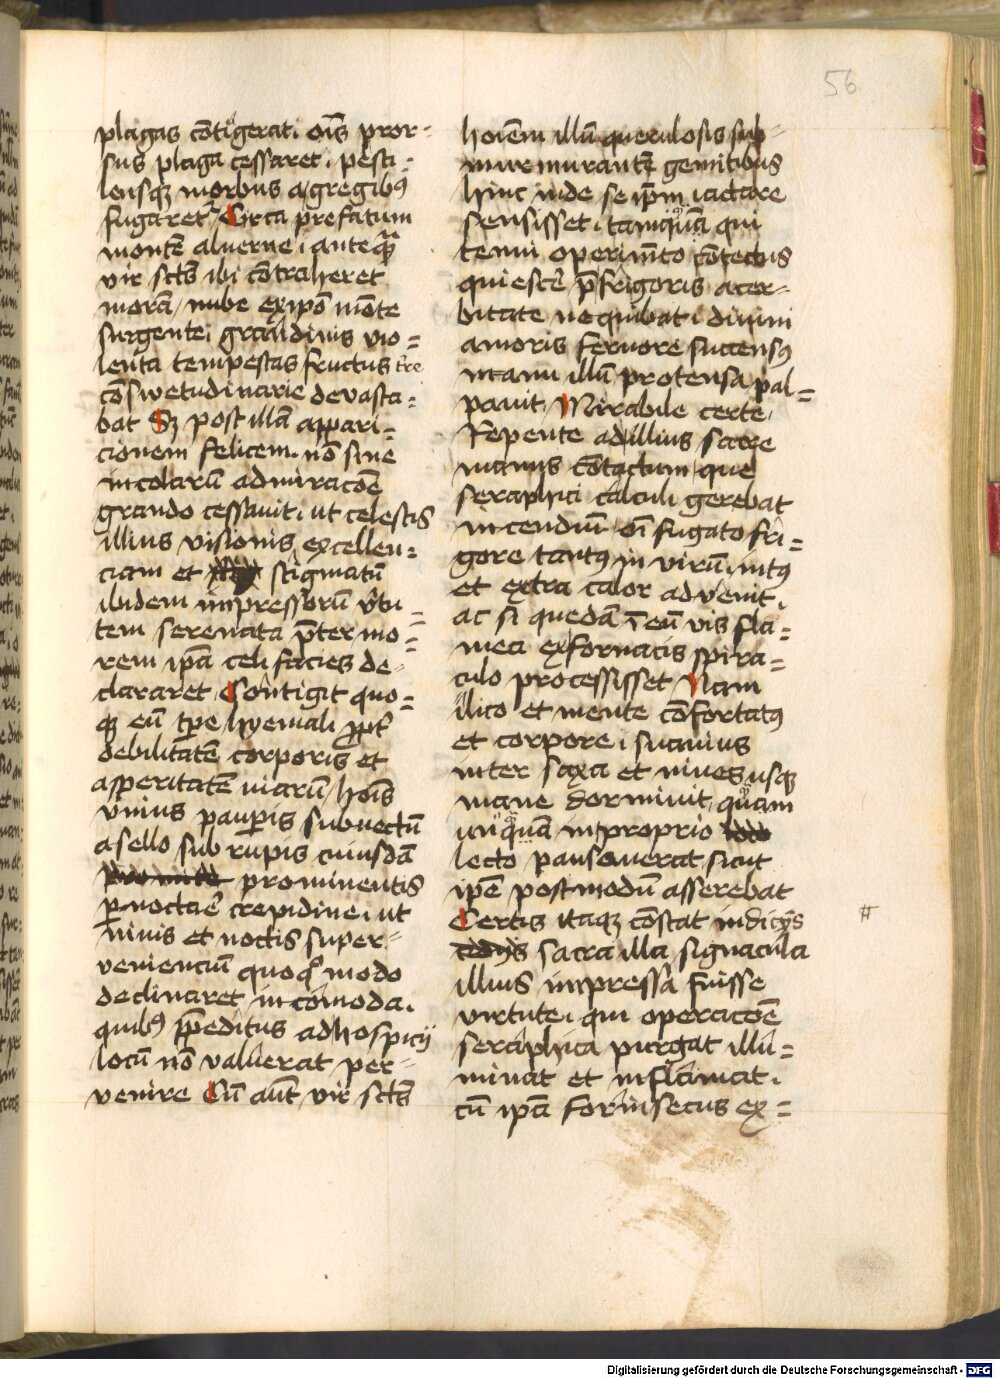 56
plagas cōtigerat. oīs pror-
sus plaga cessaret. pesti-
lensqȝ morbus a gregibꝰ
fugaretʳ Circa prefatum
montē aluerne. anteqᷓ
vir sctūs ibi cōtraheret
morā/ nube ex ipo mōte
surgente. grandinis vio=
lenta tempestas fructus tre
cōswetudinarie deuasta=
bat Sȝ post illā appari=
cionem felicem. nō sine
incolarū admiracōe
grando cessauit. ut celestis
illius visionis excellen=
ciam et stigmatū
ibidem impressorū v̄tu=
tem serenata p̄ter mo=
rem ipā celi facies de-
clararet Cōntigit quo=
qȝ eū tp̄e hyemali pp̄t
debilitatē corporis et
asperitatē viarū/ hoīs
vnius paup̄is subuectū
asello sub rupis cuiusdā
prominentis
p̲noctaē crepidine. ut
niuis et noctis super-
veniencium quoqᵒ modo
declinaret incōmoda.
quibꝰ p̄peditus ad hospicij
locū nō valuerat per-
venire Cū aūt vir sctūs
hoīem illū querulosis sub-
murmurantē gemitibus
hinc inde se ip̄m iactare
sensisset. tamquā qui
tenui operimēto cōtectus
quiescē p̄ frigoris acer-
bitate nequibat. diuini
amoris feruore succensꝰ
manu illū protensa pal=
pauit Mirabile certe
Repente ad illius sacre
manus cōtactum que
seraphici calculi gerebat
incendiū oī fugato fri=
gore tantꝰ in virū. intꝰ
et extra calor advenit.
ac si quedā ī eū vis fla=
mea ex fornacis spira=
culo processisset Nam
ilico et mente cōfortatꝰ
et corpore. suauius
inter saxa et niues usqȝ
mane dormiuit quam
unquā in proprio
lecto pausauerat sicut
ipē postmodū asserebat
Certis itaqȝ cōstat indicijs
sacra illa signacula
illius impressa fuisse
virtute. qui operacōe
seraphica purgat illu=
minat et inflāmat.
cū ipā forinsecus ex=
#
Digitalisierung gefördert durch die Deutsche Forschungsgemeinschaft - DFG